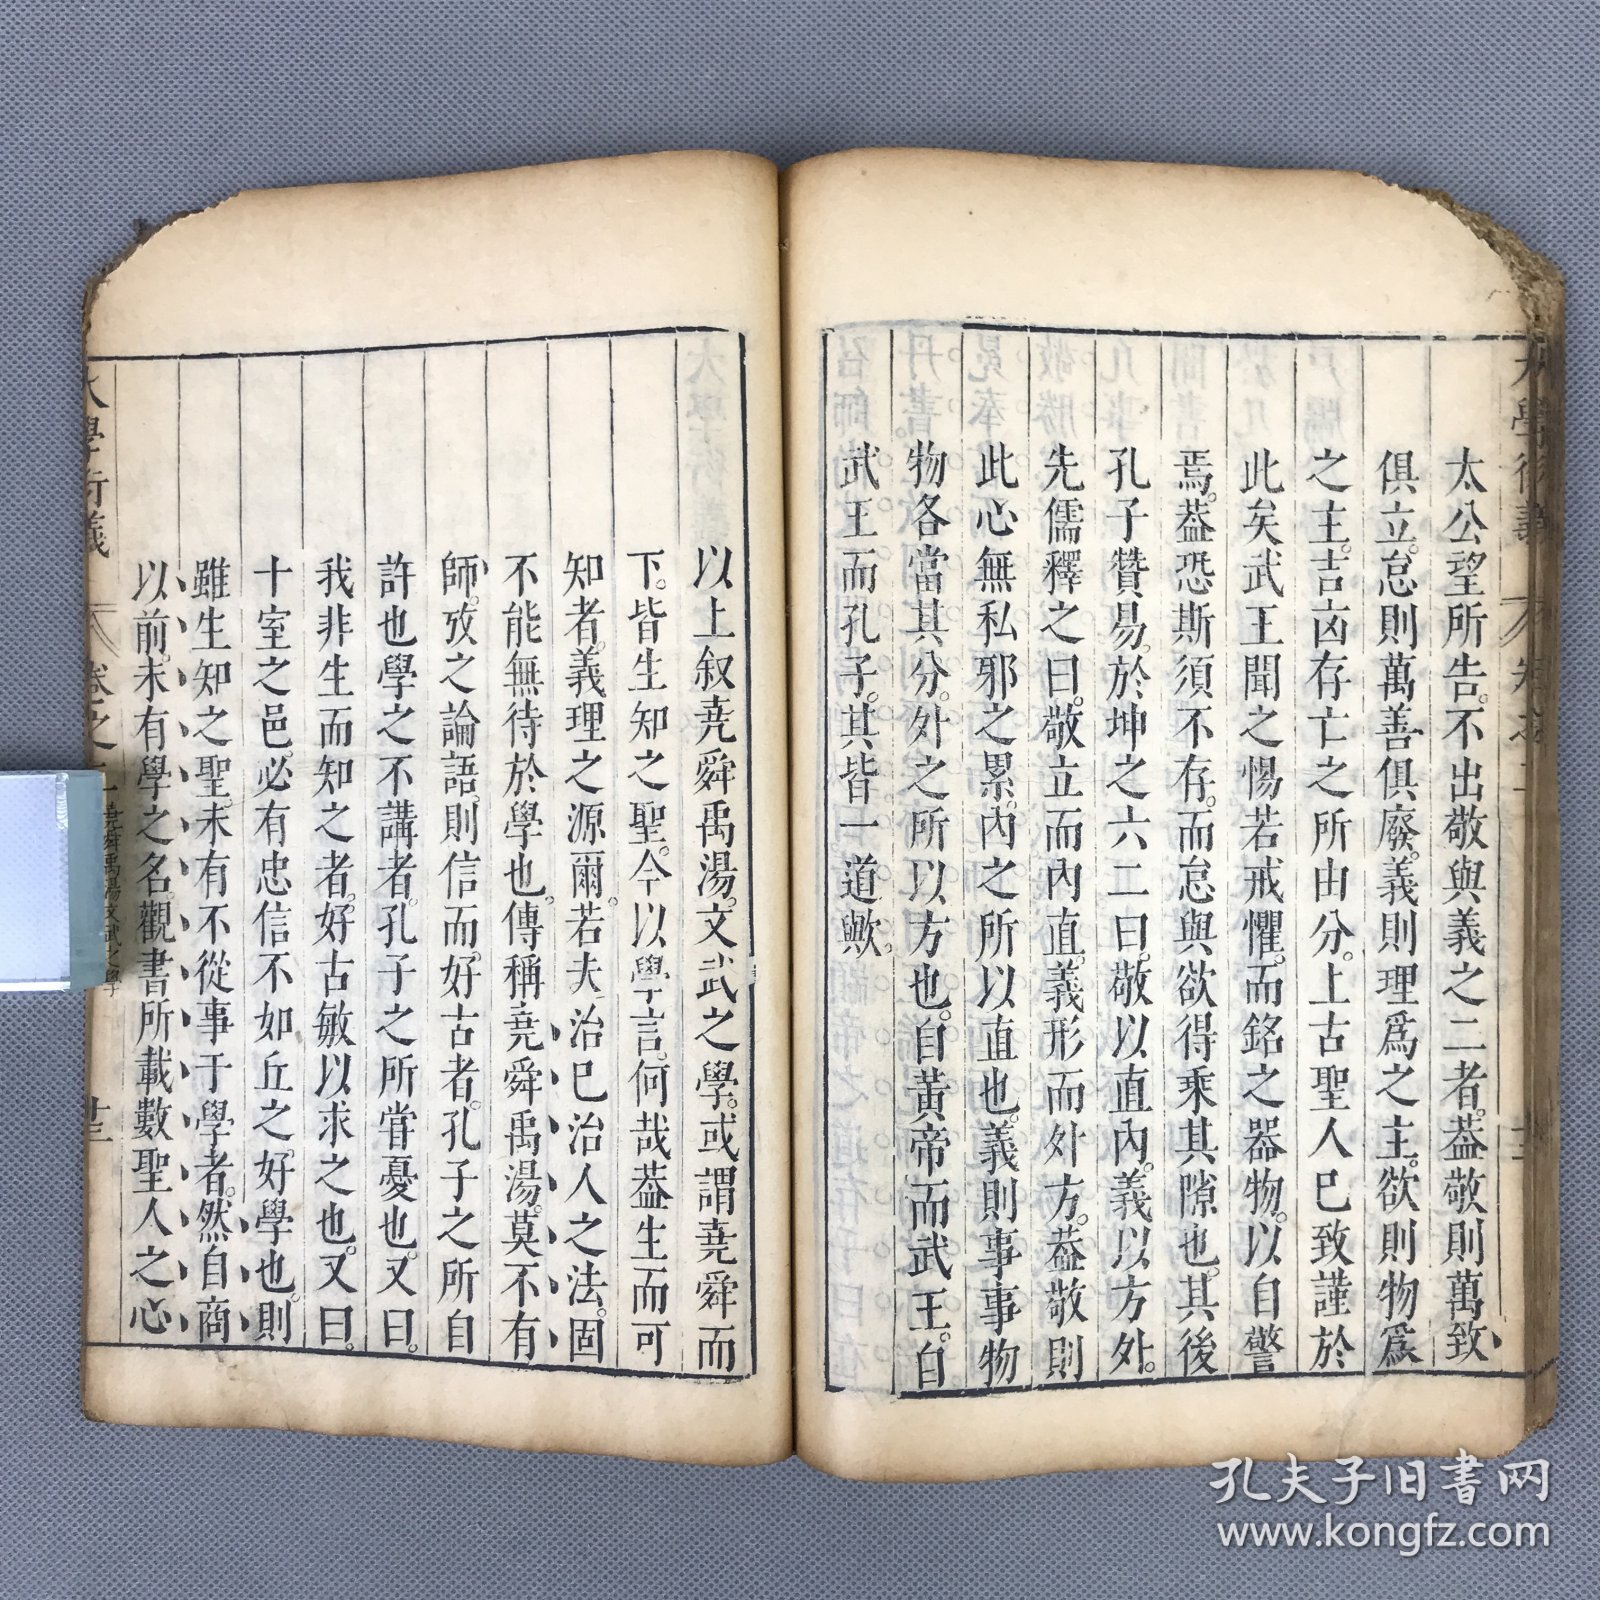 太公望所告不出敬與義之二者葢敬則萬致
俱立怠則萬善俱廢義則理爲之主欲則物爲
之主吉凶存亡之所由分上古聖人已致謹於
此矣武王聞之惕若戒懼而銘之器物以自警
焉葢恐斯須不存而怠與欲得乘其隙也其後
孔子贊易於坤之六二曰敬以直內義以方外
先儒釋之曰敬立而內直義形而外方葢敬則
此心無私邪之累內之所以直也義則事事物
物各當其分外之所以方也自黃帝而武王自
武王而孔子其皆一道歟
以上叙堯舜禹湯文武之學或謂堯舜而
下皆生知之聖今以學言何哉葢生而可
知者義理之源爾若夫治己治人之法固
不能無待於學也傳稱堯舜禹湯莫不有
師攷之論語則信而好古者孔子之所自
許也學之不講者孔子之所甞憂也又曰
我非生而知之者好古敏以求之也又曰
十室之邑必有忠信不如丘之好學也則
雖生知之聖未有不從事于學者然自商
以前未有學之名觀書所載數聖人之心
大學衍義 卷之二 堯舜禹湯文武之學 廿三
孔夫子旧书网
www.kongfz.com